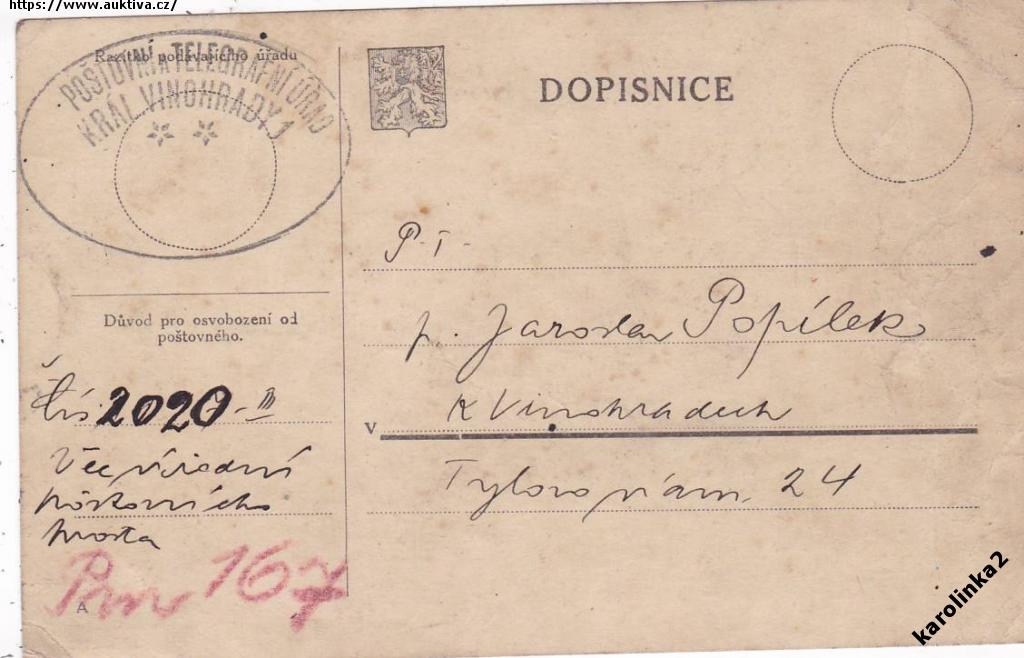 https://www.auktiva.cz/
Razítko podávajícího úřadu
POŠTOVNÍ A TELEGRAFNÍ ÚŘAD
KRÁL. VINOHRADY 1
DOPISNICE
P. T.
p. Jaroslav Popílek
v K Vinohradech
Tylovo nám. 24
Důvod pro osvobození od
poštovného.
Čís 2020-III
Věc úřední
poštovného
prosta
Prn 167
A
karolinka2